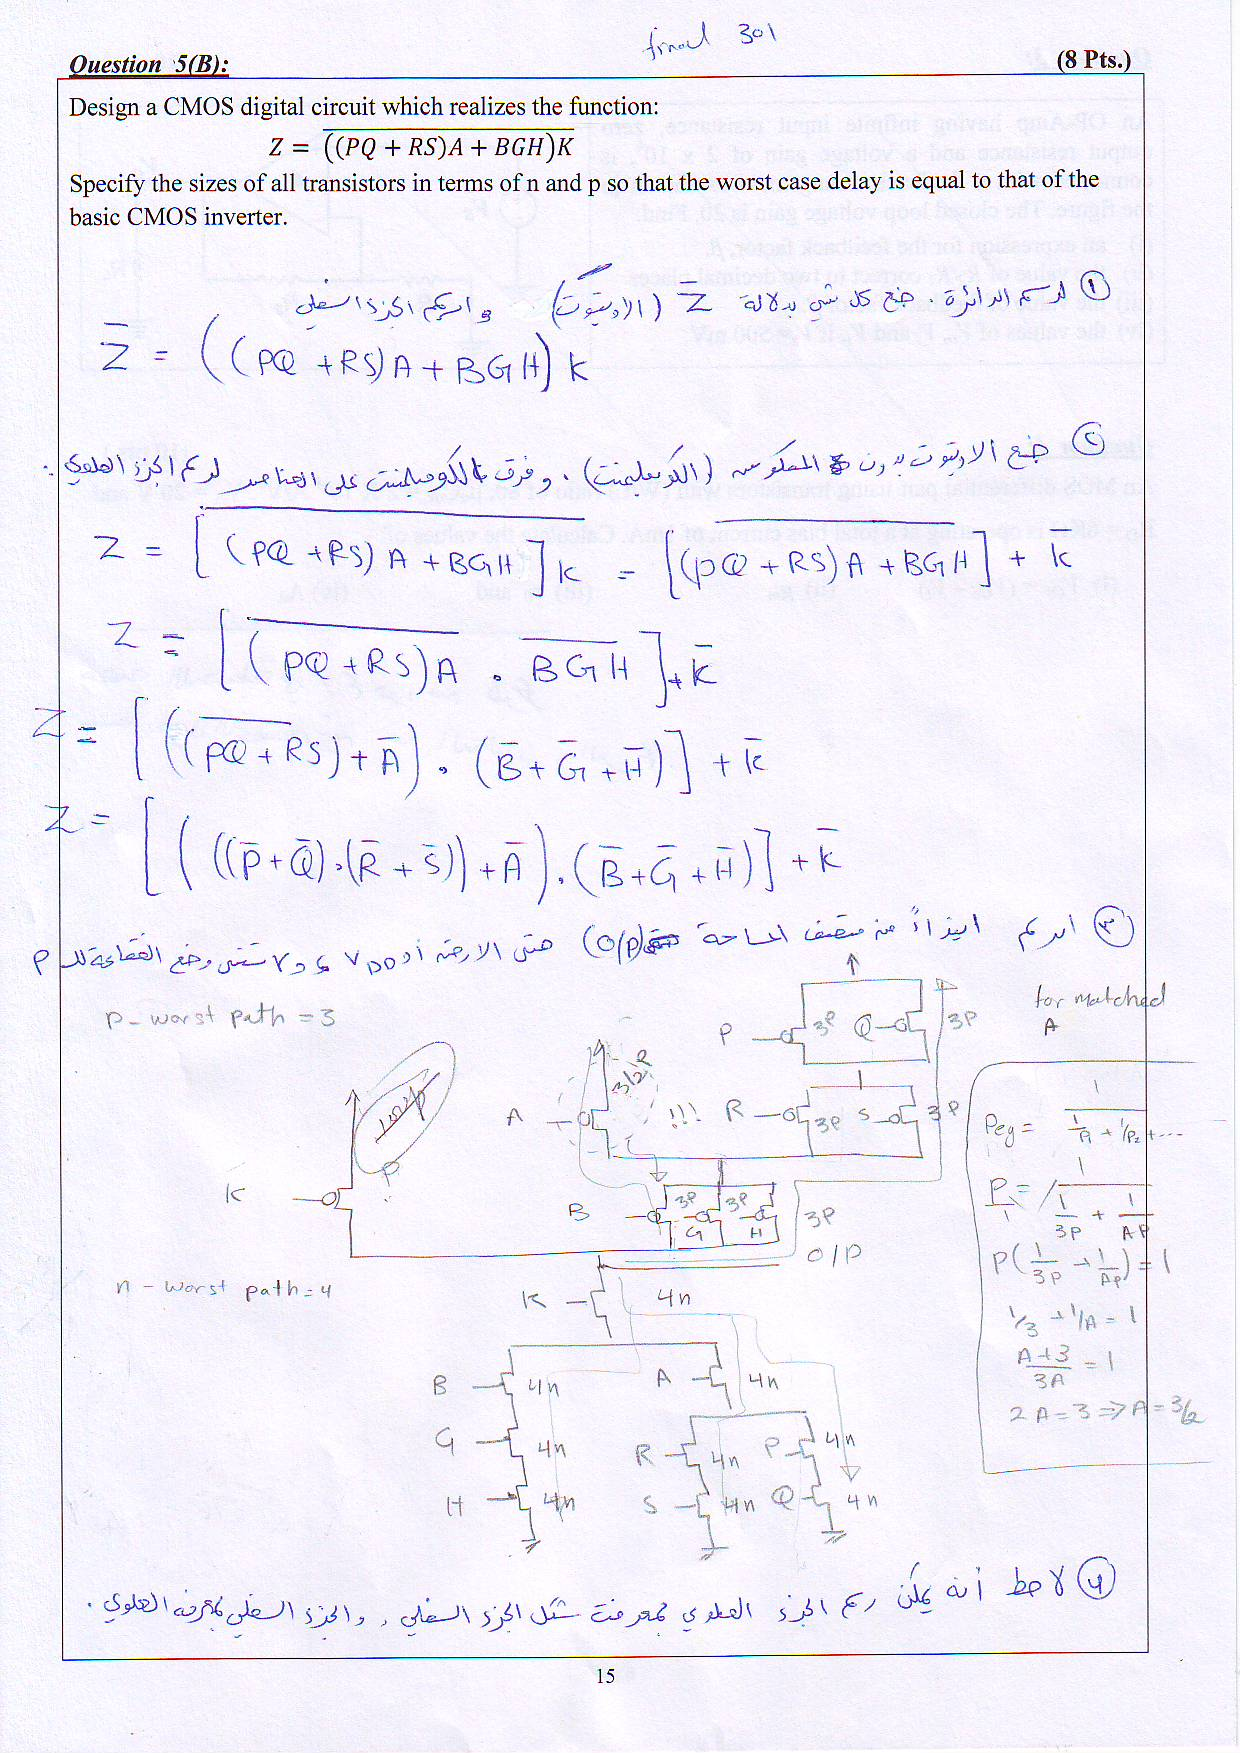 final 301
Question 5(B): (8 Pts.)
Design a CMOS digital circuit which realizes the function:
Z = \overline{((PQ + RS)A + BGH)K}
Specify the sizes of all transistors in terms of n and p so that the worst case delay is equal to that of the
basic CMOS inverter.
① لرسم الدائرة، ضع كل شيء بدلالة Z̅ (الاوتبوت) وارسم الجزء السفلي
Z̅ = ((PQ + RS)A + BGH) K
② ضع الاوتبوت بدون المعكوس (الكومبلمنت)، وفرق الكومبلمنت على العناصر لرسم الجزء العلوي.
Z = \overline{[(PQ + RS)A + BGH]K} = \overline{[(PQ + RS)A + BGH]} + K̅
Z = [\overline{(PQ + RS)A} . \overline{BGH}] + K̅
Z = [(\overline{(PQ + RS)} + A̅) . (B̅ + G̅ + H̅)] + K̅
Z = [(((P̅ + Q̅).(R̅ + S̅)) + A̅).(B̅ + G̅ + H̅)] + K̅
③ ارسم ابتداءً من منتصف المساحة (O/P) حتى الارضي أو VDD، ولا تنسى وضع الفقاعة للـ P
P - worst path = 3
for matched
A
P 3P Q 3P
A 3/2P !!! R 3P S 3P
K P
B 3P G 3P H 3P
O/P
Peq = 1 / (1/P1 + 1/P2 + ...)
P/1 = 1 / (1/3P + 1/AP)
P(1/3P + 1/AP) = 1
1/3 + 1/A = 1
A+3 / 3A = 1
2A = 3 => A = 3/2
n - worst path = 4
K 4n
B 4n A 4n
G 4n R 4n P 4n
H 4n S 4n Q 4n
④ لاحظ أنه يمكن رسم الجزء العلوي بمعرفة شكل الجزء السفلي، والجزء السفلي بمعرفة العلوي.
15